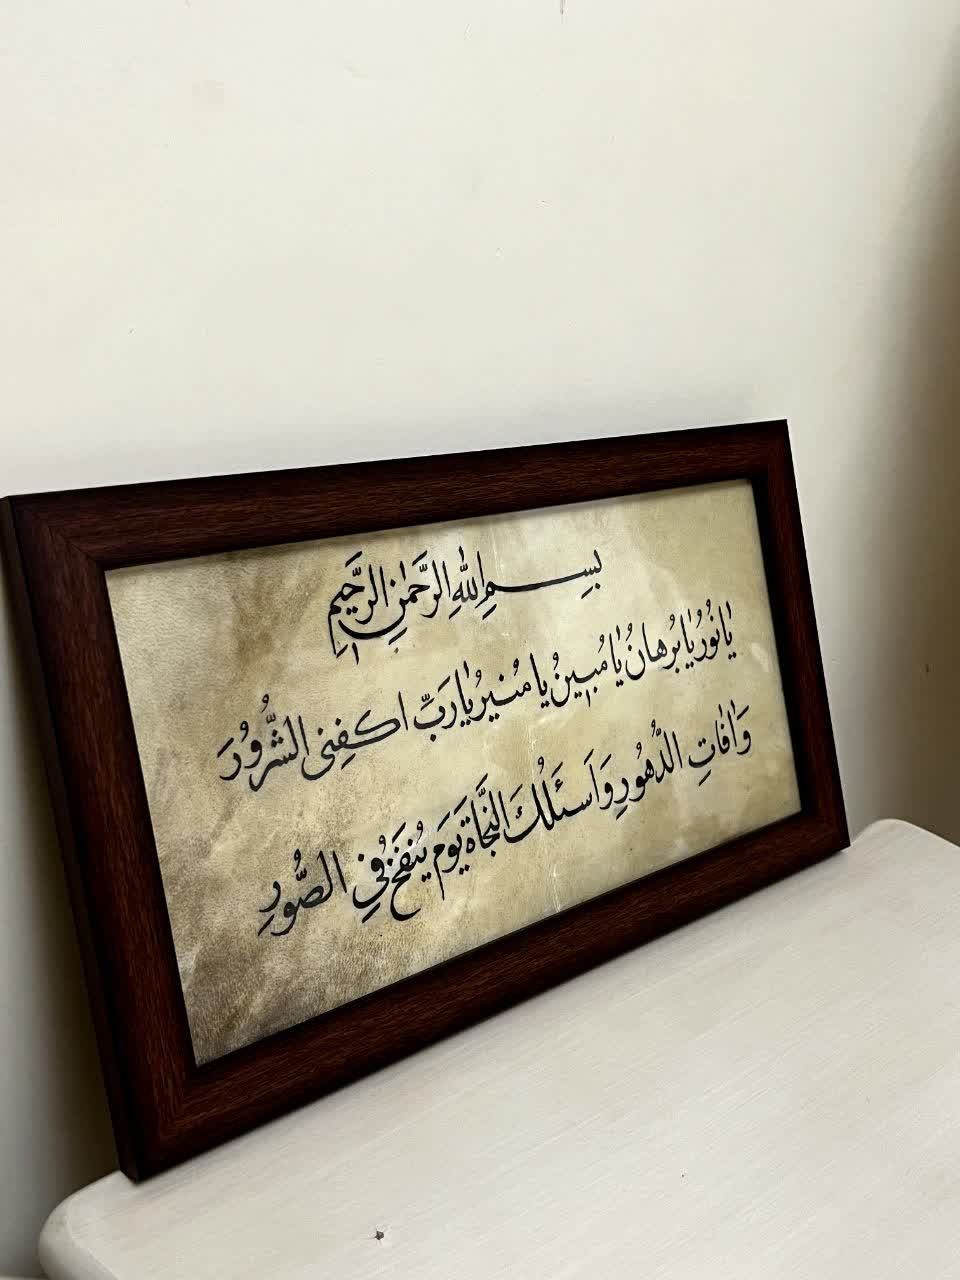 بِسْمِ اللّٰهِ الرَّحْمٰنِ الرَّحِيمِ
يٰا نُورُ يٰا بُرهٰانُ يٰا مُبينُ يا مُنيرُ يٰا رَبِّ اكفِنِى الشُّرُورَ
وَاٰفٰاتِ الدُّهُورِ وَاَسئَلُكَ النَّجٰاةَ يَومَ يُنفَخُ فِي الصُّورِ